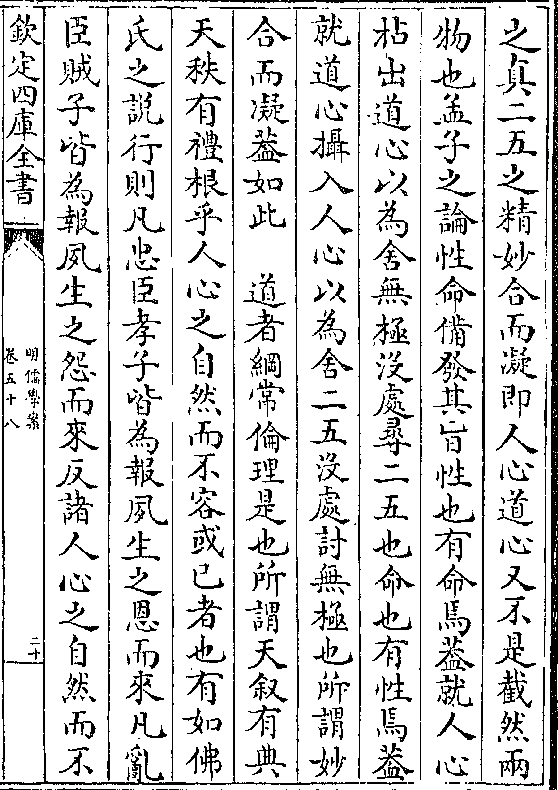 之真二五之精妙合而凝即人心道心又不是截然兩
物也孟子之論性命備發其旨性也有命焉蓋就人心
拈出道心以為舍無極没處尋二五也命也有性焉蓋
就道心攝入人心以為舍二五没處討無極也所謂妙
合而凝蓋如此　道者綱常倫理是也所謂天叙有典
天秩有禮根乎人心之自然而不容或已者也有如佛
氏之説行則凡忠臣孝子皆為報夙生之恩而來凡亂
臣賊子皆為報夙生之怨而來反諸人心之自然而不
欽定四庫全書
明儒學案
卷五十八
二十